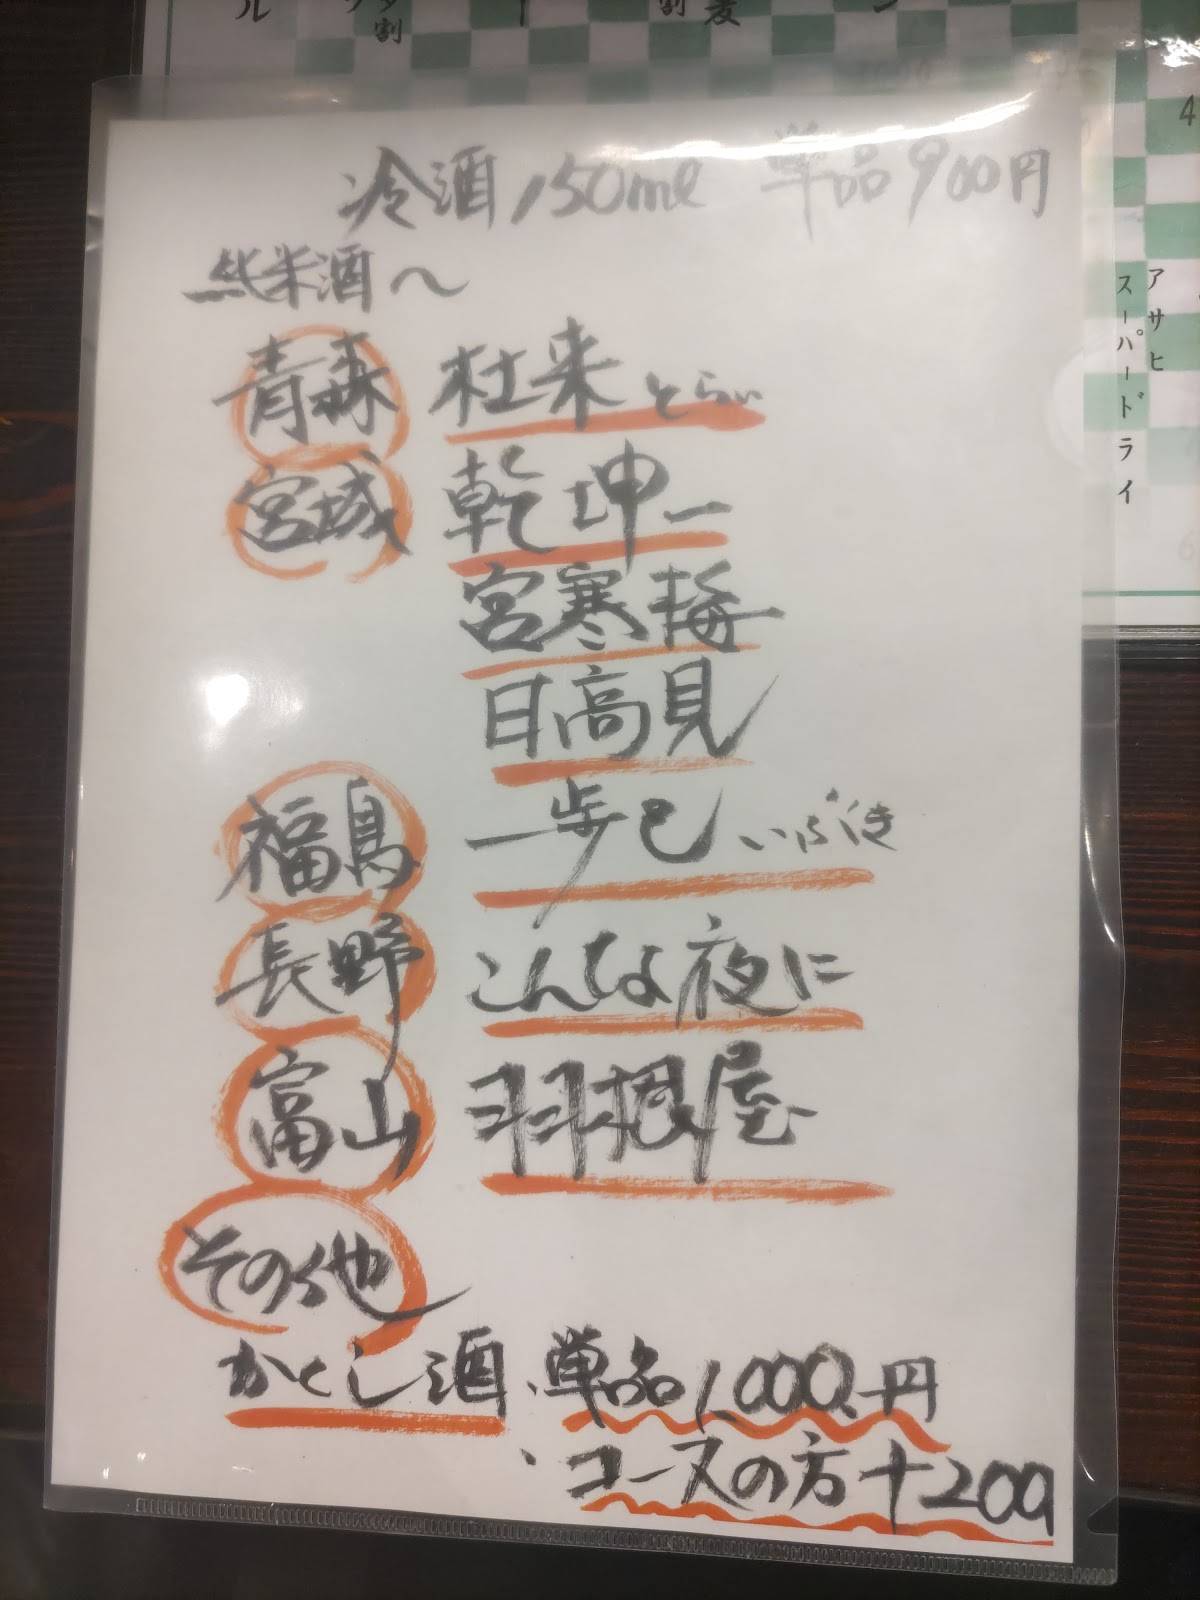 冷酒150ml 単品900円
純米酒へ
青森 杜来 とらい
宮城 乾坤一
宮寒梅
日高見
福島 一歩己 いぶき
長野 こんな夜に
富山 羽根屋
その他
かくし酒・単品1,000円
・コースの方+200
アサヒ
スーパードライ